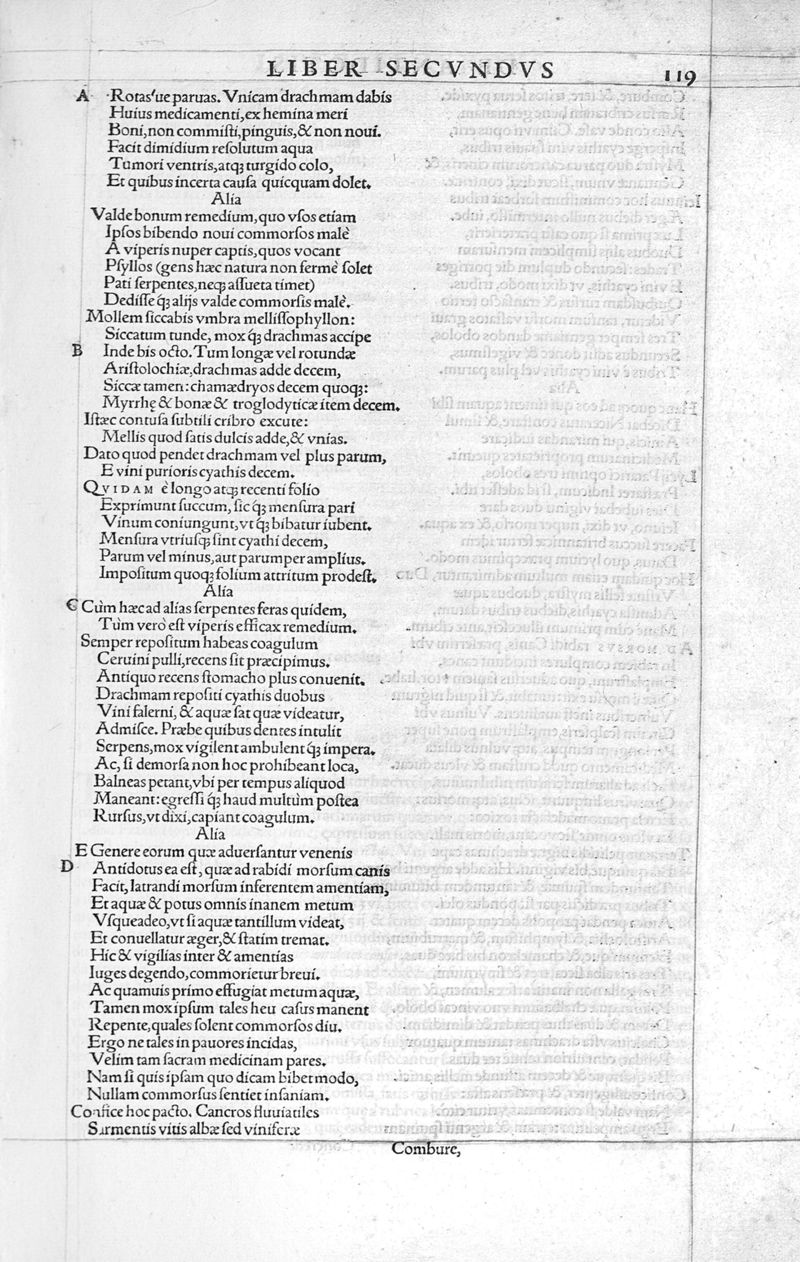 LIBER SECVNDVS 119
A Rotas'ue paruas. Vnicam drachmam dabis
Huius medicamenti, ex hemina meri
Boni, non commiſti, pinguis, & non noui.
Facit dimidium reſolutum aqua
Tumori ventris, atqꝫ turgido colo,
Et quibus incerta cauſa quicquam dolet.
Alia
Valde bonum remedium, quo vſos etiam
Ipſos bibendo noui commorſos malè
A viperis nuper captis, quos vocant
Pſyllos (gens hæc natura non fermè ſolet
Pati ſerpentes, neqꝫ aſſueta timet)
Dediſſe qꝫ́ alijs valde commorſis malè.
Mollem ſiccabis vmbra melliſſophyllon:
Siccatum tunde, mox qꝫ́ drachmas accipe
B Inde bis octo. Tum longæ vel rotundæ
Ariſtolochiæ, drachmas adde decem,
Siccæ tamen: chamædryos decem quoqꝫ:
Myrrhę & bonæ & troglodyticæ item decem.
Iſtæc contuſa ſubtili cribro excute:
Mellis quod ſatis dulcis adde, & vnias.
Dato quod pendet drachmam vel plus parum,
E vini purioris cyathis decem.
QVIDAM è longo atqꝫ recenti folio
Exprimunt ſuccum, ſic qꝫ́ menſura pari
Vinum coniungunt, vt qꝫ́ bibatur iubent.
Menſura vtriuſqꝫ ſint cyathi decem,
Parum vel minus, aut parumper amplius.
Impoſitum quoqꝫ folium attritum prodeſt.
Alia
C Cùm hæc ad alias ſerpentes feras quidem,
Tùm verò eſt viperis efficax remedium.
Semper repoſitum habeas coagulum
Ceruini pulli, recens ſit præcipimus.
Antiquo recens ſtomacho plus conuenit.
Drachmam repoſiti cyathis duobus
Vini falerni, & aquæ ſat quæ videatur,
Admiſce. Præbe quibus dentes intulit
Serpens, mox vigilent ambulent qꝫ́ impera.
Ac, ſi demorſa non hoc prohibeant loca,
Balneas petant, vbi per tempus aliquod
Maneant: egreſſi qꝫ́ haud multùm poſtea
Rurſus, vt dixi, capiant coagulum.
Alia
E Genere eorum quæ aduerſantur venenis
D Antidotus ea eſt, quæ ad rabidi morſum canis
Facit, latrandi morſum inferentem amentiam,
Et aquæ & potus omnis inanem metum
Vſqueadeo, vt ſi aquæ tantillum videat,
Et conuellatur æger, & ſtatim tremat.
Hic & vigilias inter & amentias
Iuges degendo, commorietur breui.
Ac quamuis primo effugiat metum aquæ,
Tamen mox ipſum tales heu caſus manent
Repente, quales ſolent commorſos diu.
Ergo ne tales in pauores incidas,
Velim tam ſacram medicinam pares.
Nam ſi quis ipſam quo dicam bibet modo,
Nullam commorſus ſentiet inſaniam.
Confice hoc pacto. Cancros fluuiatiles
Sarmentis vitis albæ ſed viniferæ
Combure,